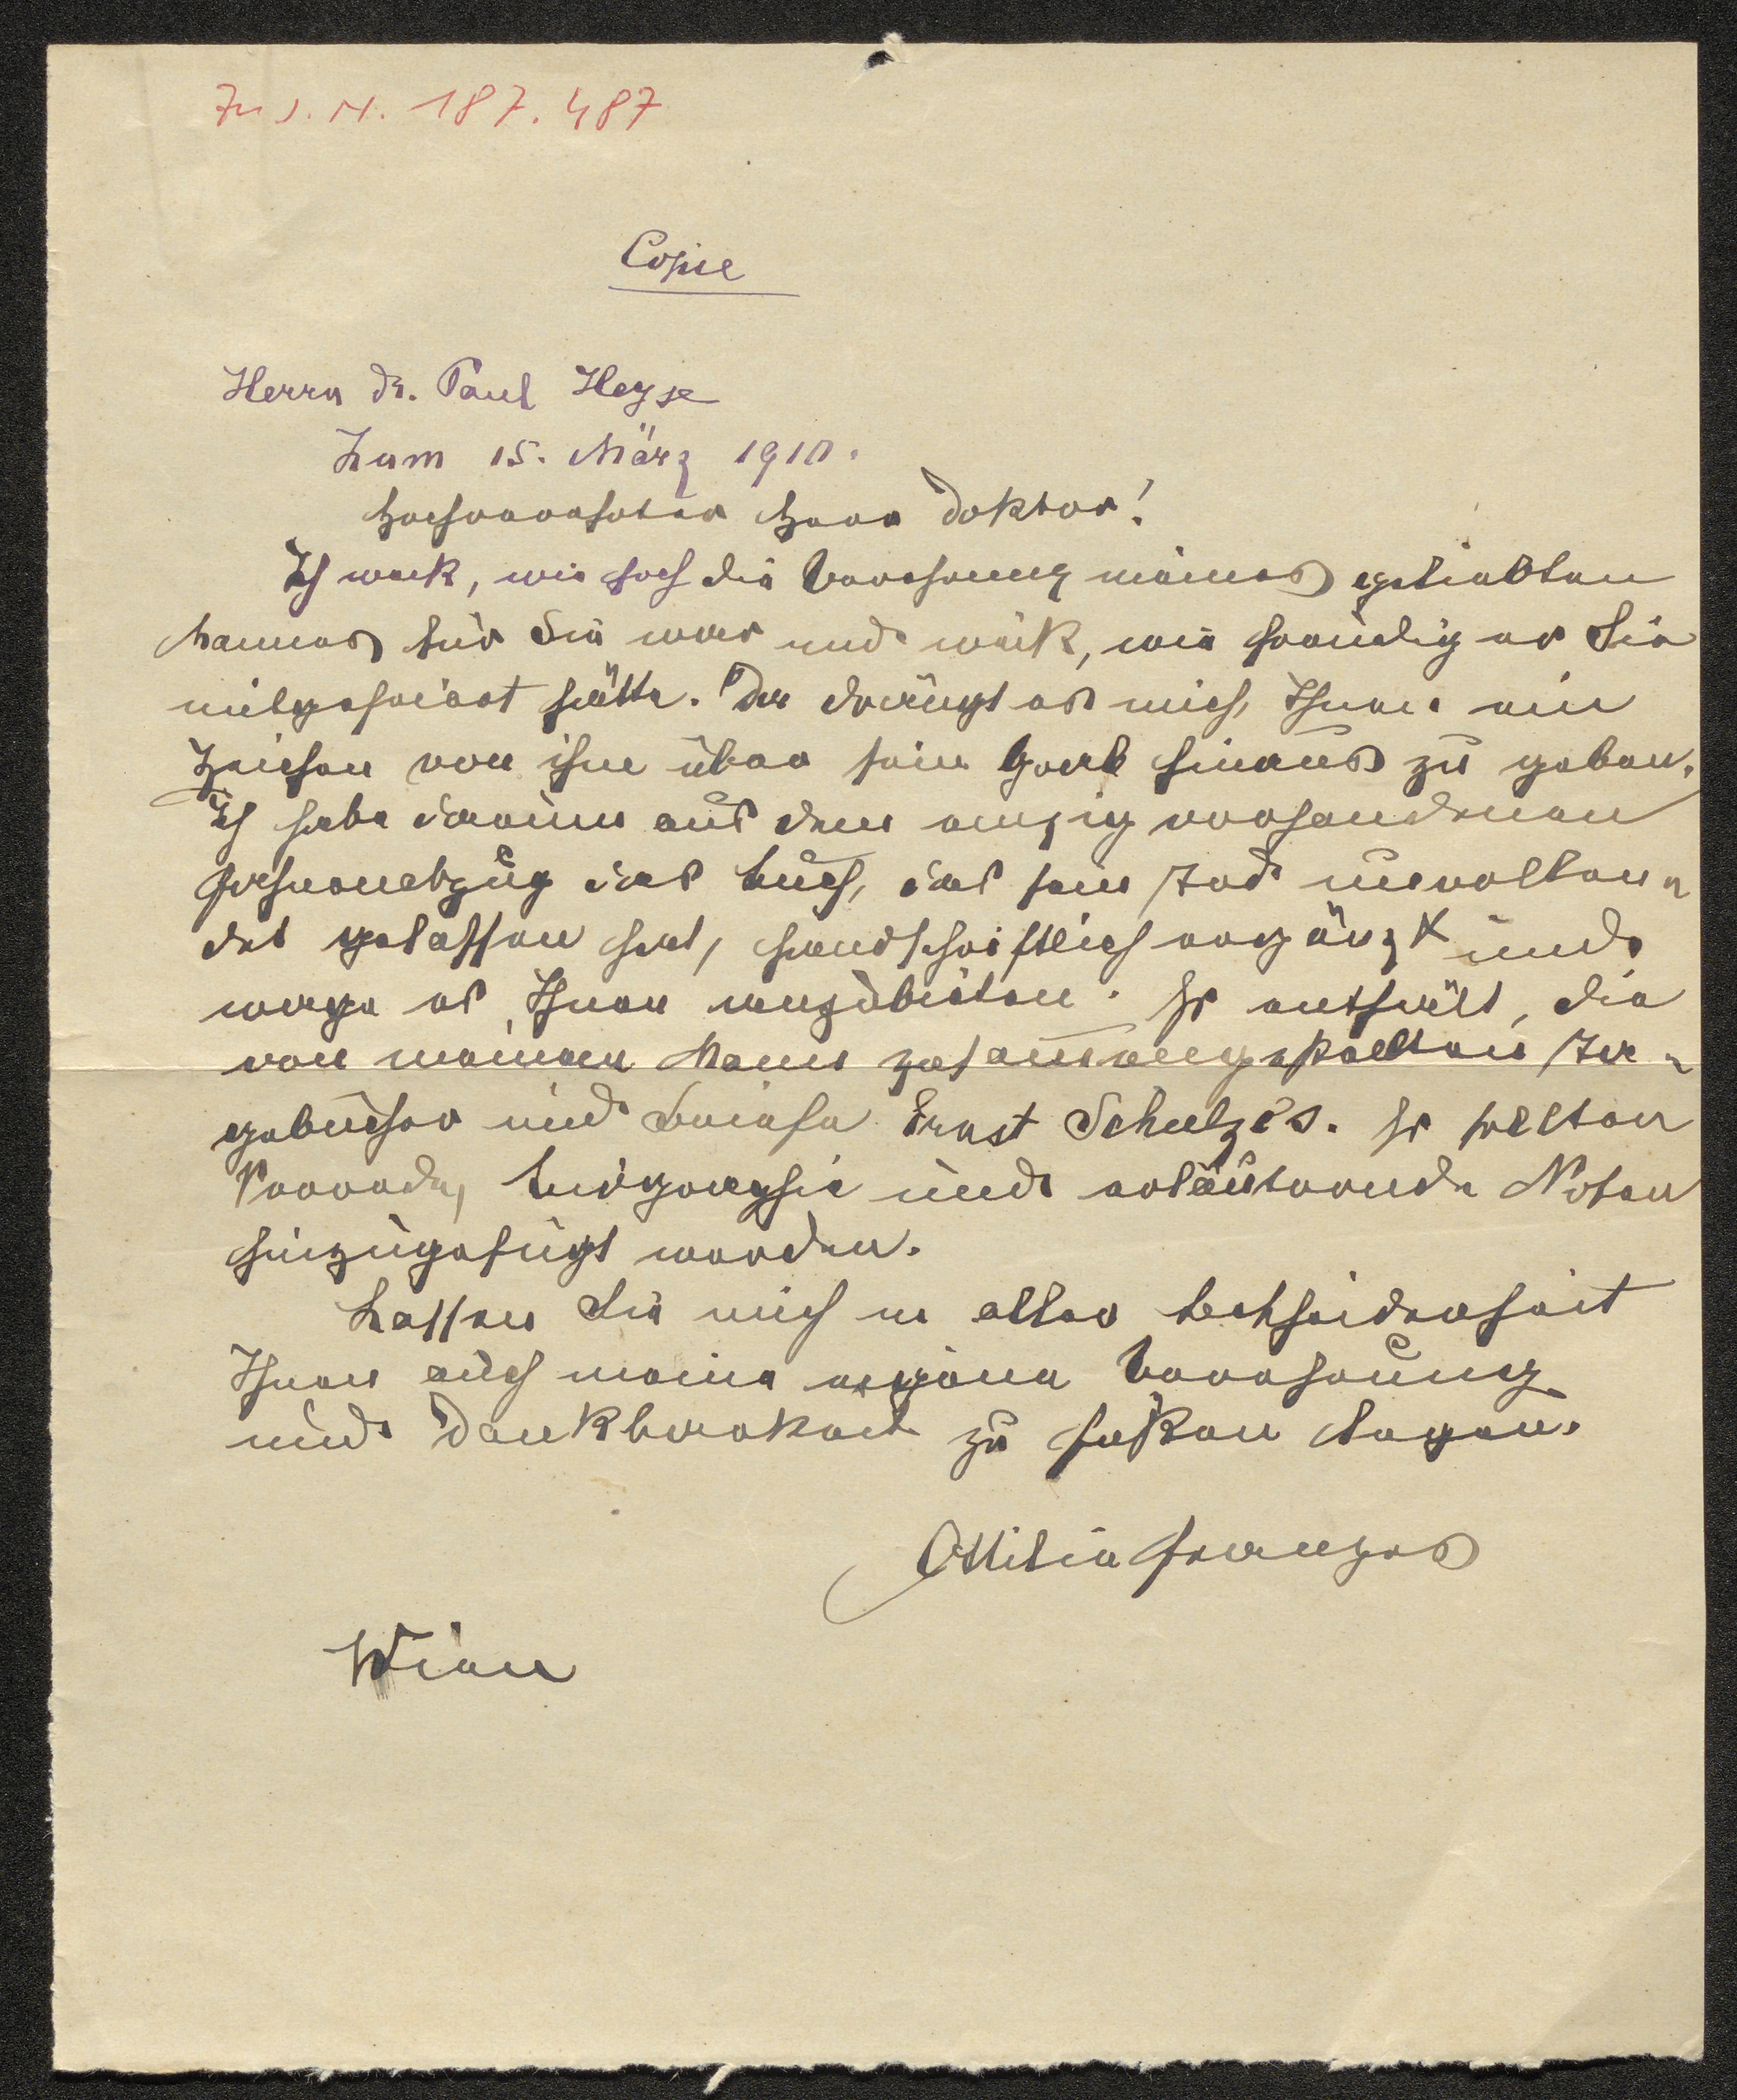 Zu J. N. 187.487
Copie
Herrn Dr. Paul Heyse
Zum 15. März 1910.
Hochverehrter Herr Doktor!
Ich weiß, wie hoch die Verehrung meines geliebten
Mannes für Sie war und weiß, wie freudig er Sie
mitgefeiert hätte. Da drängt es mich, Ihnen ein
Zeichen von ihm über sein Grab hinaus zu geben.
Ich habe darum aus dem einzig vorhandenen
das Buch, das sein Tod unvollen¬
det gelassen hat, handschriftlich ergänzt und
wage es Ihnen anzubieten. Es enthält, die
von meinem Mann zusammengestellten Ta¬
gebücher und Briefe Ernst Schulze's. Es sollten
Vorrede, Biographie und erläuternde Noten
hinzugefügt werden.
Lassen Sie mich in aller Bescheidenheit
Ihnen auch meine eigene Verehrung
und Dankbarkeit zu Füßen legen.
Ottilie Franzos
Wien